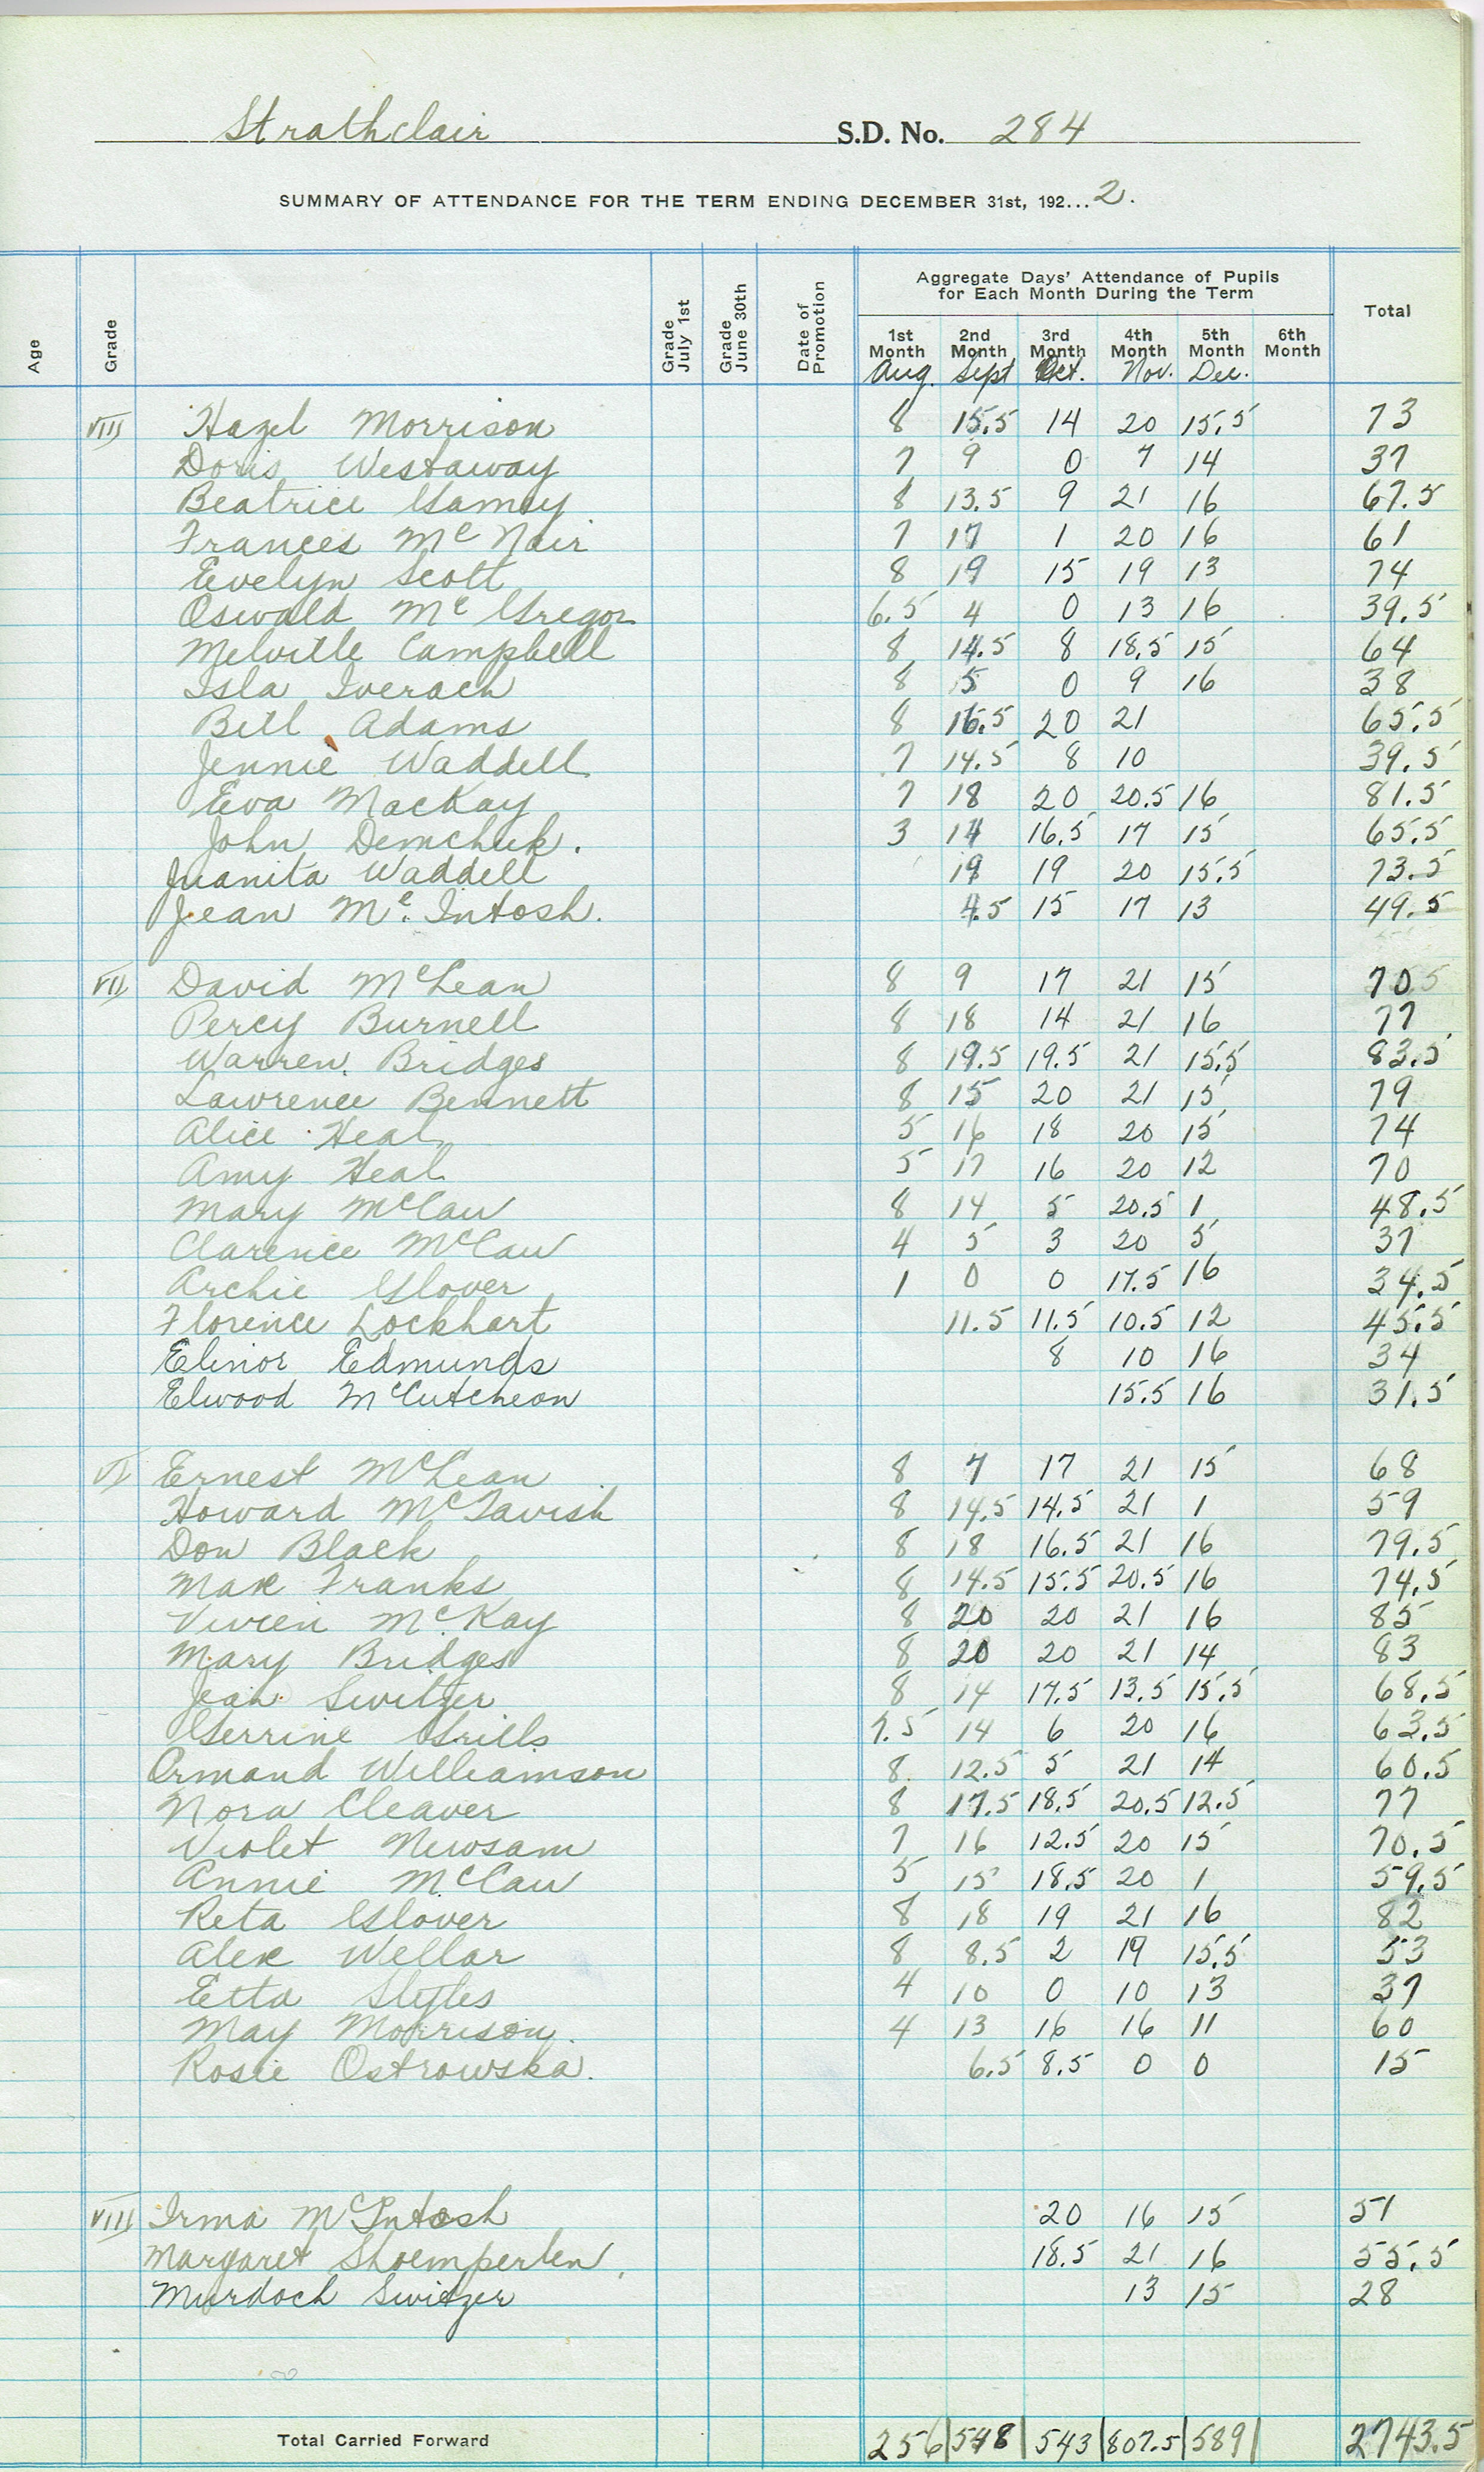 Strathclair S.D. No. 284
SUMMARY OF ATTENDANCE FOR THE TERM ENDING DECEMBER 31st, 192...2.
Age Grade Grade July 1st Grade June 30th Date of Promotion Aggregate Days' Attendance of Pupils for Each Month During the Term Total
1st Month 2nd Month 3rd Month 4th Month 5th Month 6th Month
Aug. Sept Oct. Nov. Dec.
VIII Hazel Morrison 8 15.5 14 20 15.5 73
Doris Westaway 7 9 0 7 14 37
Beatrice Gamey 8 13.5 9 21 16 67.5
Frances Mc Nair 7 17 1 20 16 61
Evelyn Scott 8 19 15 19 13 74
Oswald Mc Gregor 6.5 4 0 13 16 39.5
Melville Campbell 8 14.5 8 18.5 15 64
Isla Iverach 8 5 0 9 16 38
Bill Adams 8 16.5 20 21 65.5
Jennie Waddell 7 14.5 8 10 39.5
Eva MacKay 7 18 20 20.5 16 81.5
John Demchuk. 3 14 16.5 17 15 65.5
Juanita Waddell 19 19 20 15.5 73.5
Jean Mc. Intosh. 4.5 15 17 13 49.5
VII David McLean 8 9 17 21 15 70
Percy Burnell 8 18 14 21 16 77
Warren Bridges 8 19.5 19.5 21 15.5 83.5
Lawrence Bennett 8 15 20 21 15 79
Alice Heal 5 16 18 20 15 74
Amy Heal 5 17 16 20 12 70
Mary McCaw 8 14 5 20.5 1 48.5
Clarence McCaw 4 5 3 20 5 37
Archie Glover 1 0 0 17.5 16 34.5
Florence Lockhart 11.5 11.5 10.5 12 45.5
Elinor Edmunds 8 10 16 34
Elwood McCutcheon 15.5 16 31.5
VI Ernest McLean 8 7 17 21 15 68
Howard McTavish 8 14.5 14.5 21 1 59
Don Black 8 18 16.5 21 16 79.5
Max Franks 8 14.5 15.5 20.5 16 74.5
Vivien Mc.Kay 8 20 20 21 16 85
Mary Bridges 8 20 20 21 14 83
Jean Switzer 8 14 17.5 13.5 15.5 68.5
Gerrine Grills 7.5 14 6 20 16 63.5
Armand Williamson 8 12.5 5 21 14 60.5
Nora Cleaver 8 17.5 18.5 20.5 12.5 77
Violet Newsam 7 16 12.5 20 15 70.5
Annie McCaw 5 15 18.5 20 1 59.5
Reta Glover 8 18 19 21 16 82
Alex Wellar 8 8.5 2 19 15.5 53
Etta Slytes 4 10 0 10 13 37
May Morrison. 4 13 16 16 11 60
Rosie Ostrowska. 6.5 8.5 0 0 15
VIII Irma McIntosh 20 16 15 51
Margaret Shoemperlen. 18.5 21 16 55.5
Murdoch Switzer 13 15 28
Total Carried Forward 256 548 543 807.5 589 2743.5